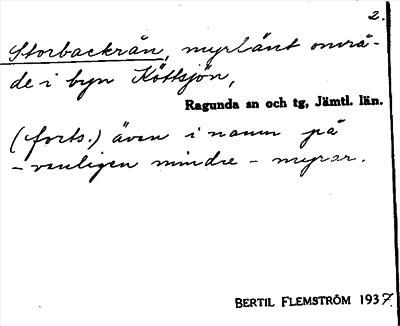 2.
Storbackrån, myrlänt områ-
de i byn Köttsjön,
Ragunda sn och tg, Jämtl. län.
(forts.) även i namn på
- vanligen mindre - myrar.
BERTIL FLEMSTRÖM 1937.